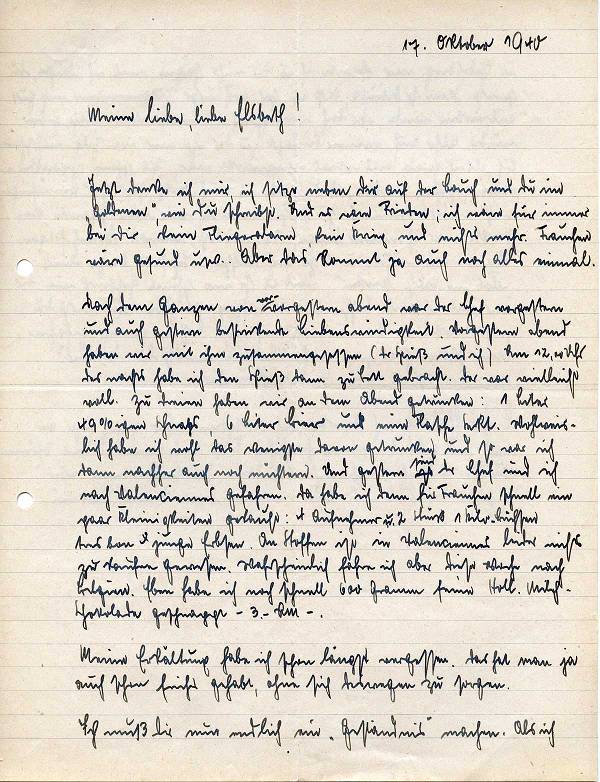 17. Oktober 1940
Meine liebe, liebe Elsbeth!
Jetzt denke ich mir, ich sitze neben Dir auf der Couch und Du im
„Goldenen" wie Du schreibst. Und es wäre Frieden; ich wäre für immer
bei Dir, kein Fliegeralarm, kein Krieg und nichts mehr. Frauchen
wäre gesund usw.. Aber das kommt ja auch noch alles einmal.
Nach dem Ganzen von vorgestern abend war der Chef vorgestern
und auch gestern bestrickende Liebenswürdigkeit. Vorgestern abend
haben wir mit ihm zusammengesessen (der Spieß und ich) Um 12, Uhr
des nachts habe ich den Spieß dann zu Bett gebracht. der war vielleicht
voll. Zu dreien haben wir an dem Abend getrunken: 1 Liter
49%igen Schnaps, 6 Liter Bier und eine Flasche Sekt. Wohlweis-
lich habe ich wohl das wenigste davon getrunken und so war ich
dann nachher auch noch nüchtern. Und gestern sind der Chef und ich
nach Valenciennes gefahren. da habe ich dann für Frauchen schnell ein
paar Kleinigkeiten gekauft: 4 Aufnehmer u. 2 Stück 1 Kilo-Büchsen
junge Erbsen. An Stoffen ist in Valenciennes leider nichts
zu kaufen gewesen. Wahrscheinlich fahre ich aber diese Woche nach
Belgien. Eben habe ich noch schnell 600 Gramm feine Holl. Milch-
schokolade geschnappt - 3.- RM -.
Meine Erkältung habe ich schon längst vergessen. das hat man ja
auch schon früher gehabt, ohne sich deswegen zu sorgen.
Ich muß Dir nun endlich ein „Geständnis" machen. Als ich